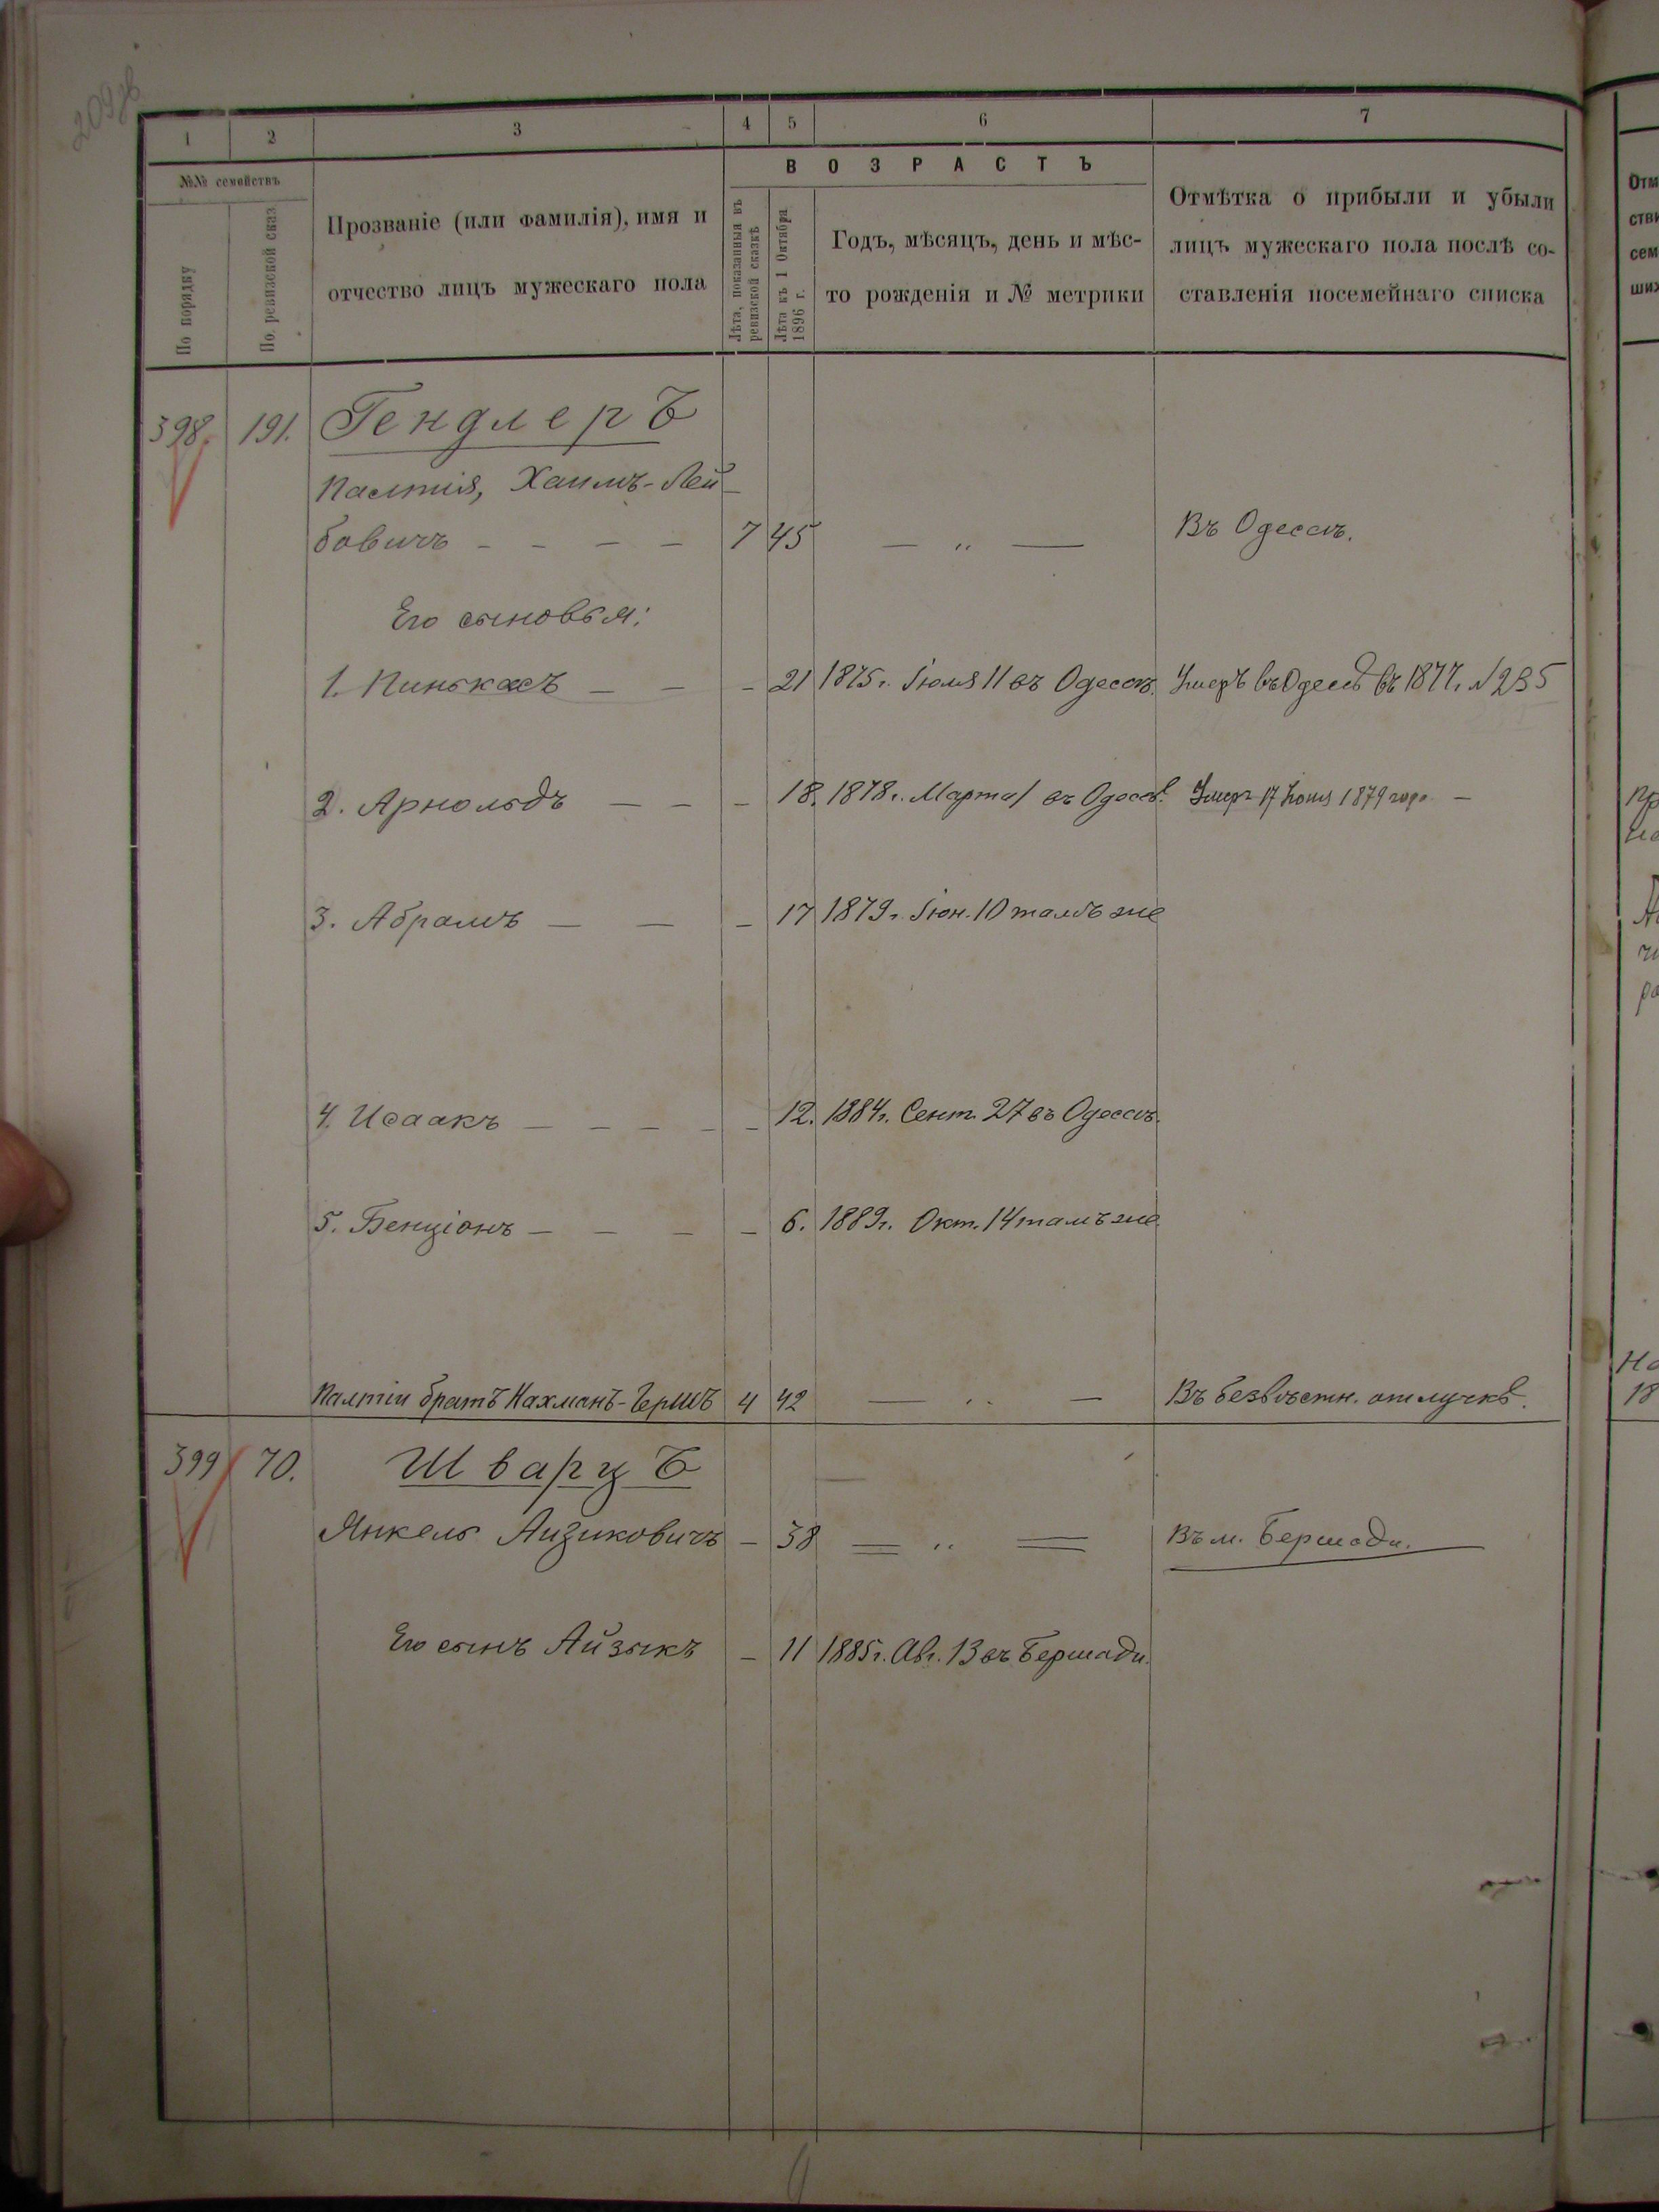 209об
1 2 3 4 5 6 7
№№ семействъ
По порядку
По ревизской сказ
Прозваніе (или фамилія), имя и
отчество лицъ мужескаго пола
ВОЗРАСТЪ
Лѣта, показанныя въ
ревизской сказкѣ
Лѣта къ 1 Октября
1896 г.
Годъ, мѣсяцъ, день и мѣс-
то рожденія и № метрики
Отмѣтка о прибыли и убыли
лицъ мужескаго пола послѣ со-
ставленія посемейнаго списка
398. 191. Гендлеръ
Палтія, Хаимъ-Лей-
бовичъ — — — — 7 45 — „ — Въ Одессѣ.
Его сыновья:
1. Пинькасъ — — — 21 1875 г. Іюля 11 въ Одессѣ. Умеръ въ Одессѣ въ 1877 г. № 235
2. Арнольдъ — — — 18. 1878 г. Марта 1 въ Одессѣ. Умеръ 17 Іюня 1879 года —
3. Абрамъ — — — 17 1879 г. Іюн. 10 тамъ же
4. Исаакъ — — — — — 12. 1884 г. Сент. 27 въ Одессѣ.
5. Бенціонъ — — — — 6. 1889 г. Окт. 14 тамъ же
Палтіи братъ Нахманъ-Гершъ 4 42 — „ — Въ безвѣстн. отлучкѣ.
399 70. Шварцъ
Янкель Аизиковичъ — 38 = „ = Въ м. Бершади.
Его сынъ Айзыкъ — 11 1885 г. Авг. 13 въ Бершади.